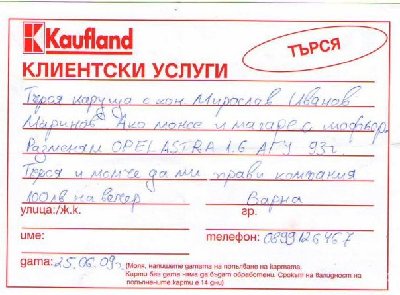 Kaufland
ТЪРСЯ
КЛИЕНТСКИ УСЛУГИ
Търся каруца с кон Мирослав Иванов
Маринов Ако може и магаре с шофьор.
Разменям OPEL ASTRA 1.6 АГУ 93г.
Търся и момче да ми прави компания
100лв на вечер Варна
улица:/ж.к. гр.
име: телефон: 0899126467
дата: 25.06.09г (Моля, напишете датата на попълване на картата.
Карти без дата няма да бъдат обработени. Срокът на валидност на
попълнените карти е 14 дни)